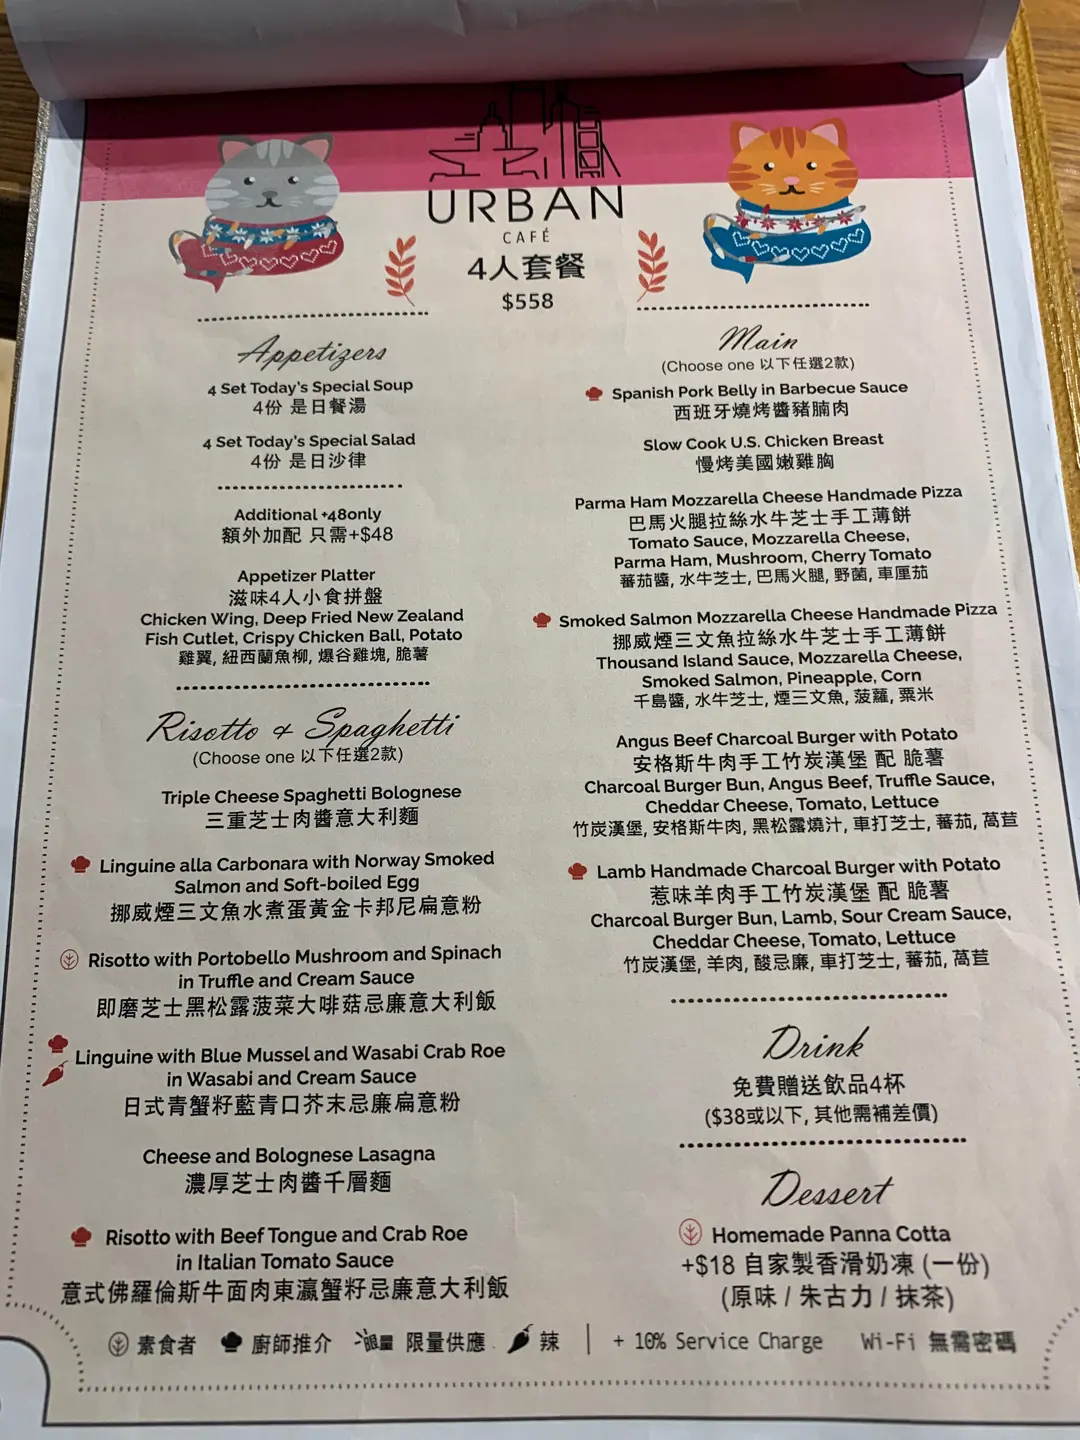 URBAN
CAFÉ
4人套餐
$558
Appetizers
4 Set Today's Special Soup
4份 是日餐湯
4 Set Today's Special Salad
4份 是日沙律
Additional +48only
額外加配 只需+$48
Appetizer Platter
滋味4人小食拼盤
Chicken Wing, Deep Fried New Zealand
Fish Cutlet, Crispy Chicken Ball, Potato
雞翼, 紐西蘭魚柳, 爆谷雞塊, 脆薯
Risotto & Spaghetti
(Choose one 以下任選2款)
Triple Cheese Spaghetti Bolognese
三重芝士肉醬意大利麵
Linguine alla Carbonara with Norway Smoked
Salmon and Soft-boiled Egg
挪威煙三文魚水煮蛋黃金卡邦尼扁意粉
Risotto with Portobello Mushroom and Spinach
in Truffle and Cream Sauce
即磨芝士黑松露菠菜大啡菇忌廉意大利飯
Linguine with Blue Mussel and Wasabi Crab Roe
in Wasabi and Cream Sauce
日式青蟹籽藍青口芥末忌廉扁意粉
Cheese and Bolognese Lasagna
濃厚芝士肉醬千層麵
Risotto with Beef Tongue and Crab Roe
in Italian Tomato Sauce
意式佛羅倫斯牛面肉東瀛蟹籽忌廉意大利飯
Main
(Choose one 以下任選2款)
Spanish Pork Belly in Barbecue Sauce
西班牙燒烤醬豬腩肉
Slow Cook U.S. Chicken Breast
慢烤美國嫩雞胸
Parma Ham Mozzarella Cheese Handmade Pizza
巴馬火腿拉絲水牛芝士手工薄餅
Tomato Sauce, Mozzarella Cheese,
Parma Ham, Mushroom, Cherry Tomato
蕃茄醬, 水牛芝士, 巴馬火腿, 野菌, 車厘茄
Smoked Salmon Mozzarella Cheese Handmade Pizza
挪威煙三文魚拉絲水牛芝士手工薄餅
Thousand Island Sauce, Mozzarella Cheese,
Smoked Salmon, Pineapple, Corn
千島醬, 水牛芝士, 煙三文魚, 菠蘿, 粟米
Angus Beef Charcoal Burger with Potato
安格斯牛肉手工竹炭漢堡 配 脆薯
Charcoal Burger Bun, Angus Beef, Truffle Sauce,
Cheddar Cheese, Tomato, Lettuce
竹炭漢堡, 安格斯牛肉, 黑松露燒汁, 車打芝士, 蕃茄, 萵苣
Lamb Handmade Charcoal Burger with Potato
惹味羊肉手工竹炭漢堡 配 脆薯
Charcoal Burger Bun, Lamb, Sour Cream Sauce,
Cheddar Cheese, Tomato, Lettuce
竹炭漢堡, 羊肉, 酸忌廉, 車打芝士, 蕃茄, 萵苣
Drink
免費贈送飲品4杯
($38或以下, 其他需補差價)
Dessert
Homemade Panna Cotta
+$18 自家製香滑奶凍 (一份)
(原味 / 朱古力 / 抹茶)
素食者 廚師推介 限量 限量供應 辣 | + 10% Service Charge Wi-Fi 無需密碼